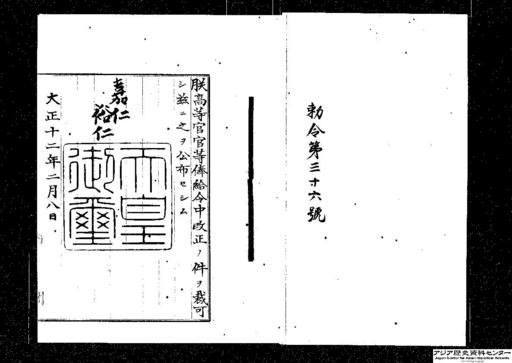 勅令第三十六號
朕高等官官等俸給令中改正ノ件ヲ裁可
シ茲ニ之ヲ公布セシム
嘉仁
裕仁
天皇
御璽
大正十二年二月八日
アジア歴史資料センター
Japan Center for Asian Historical Records